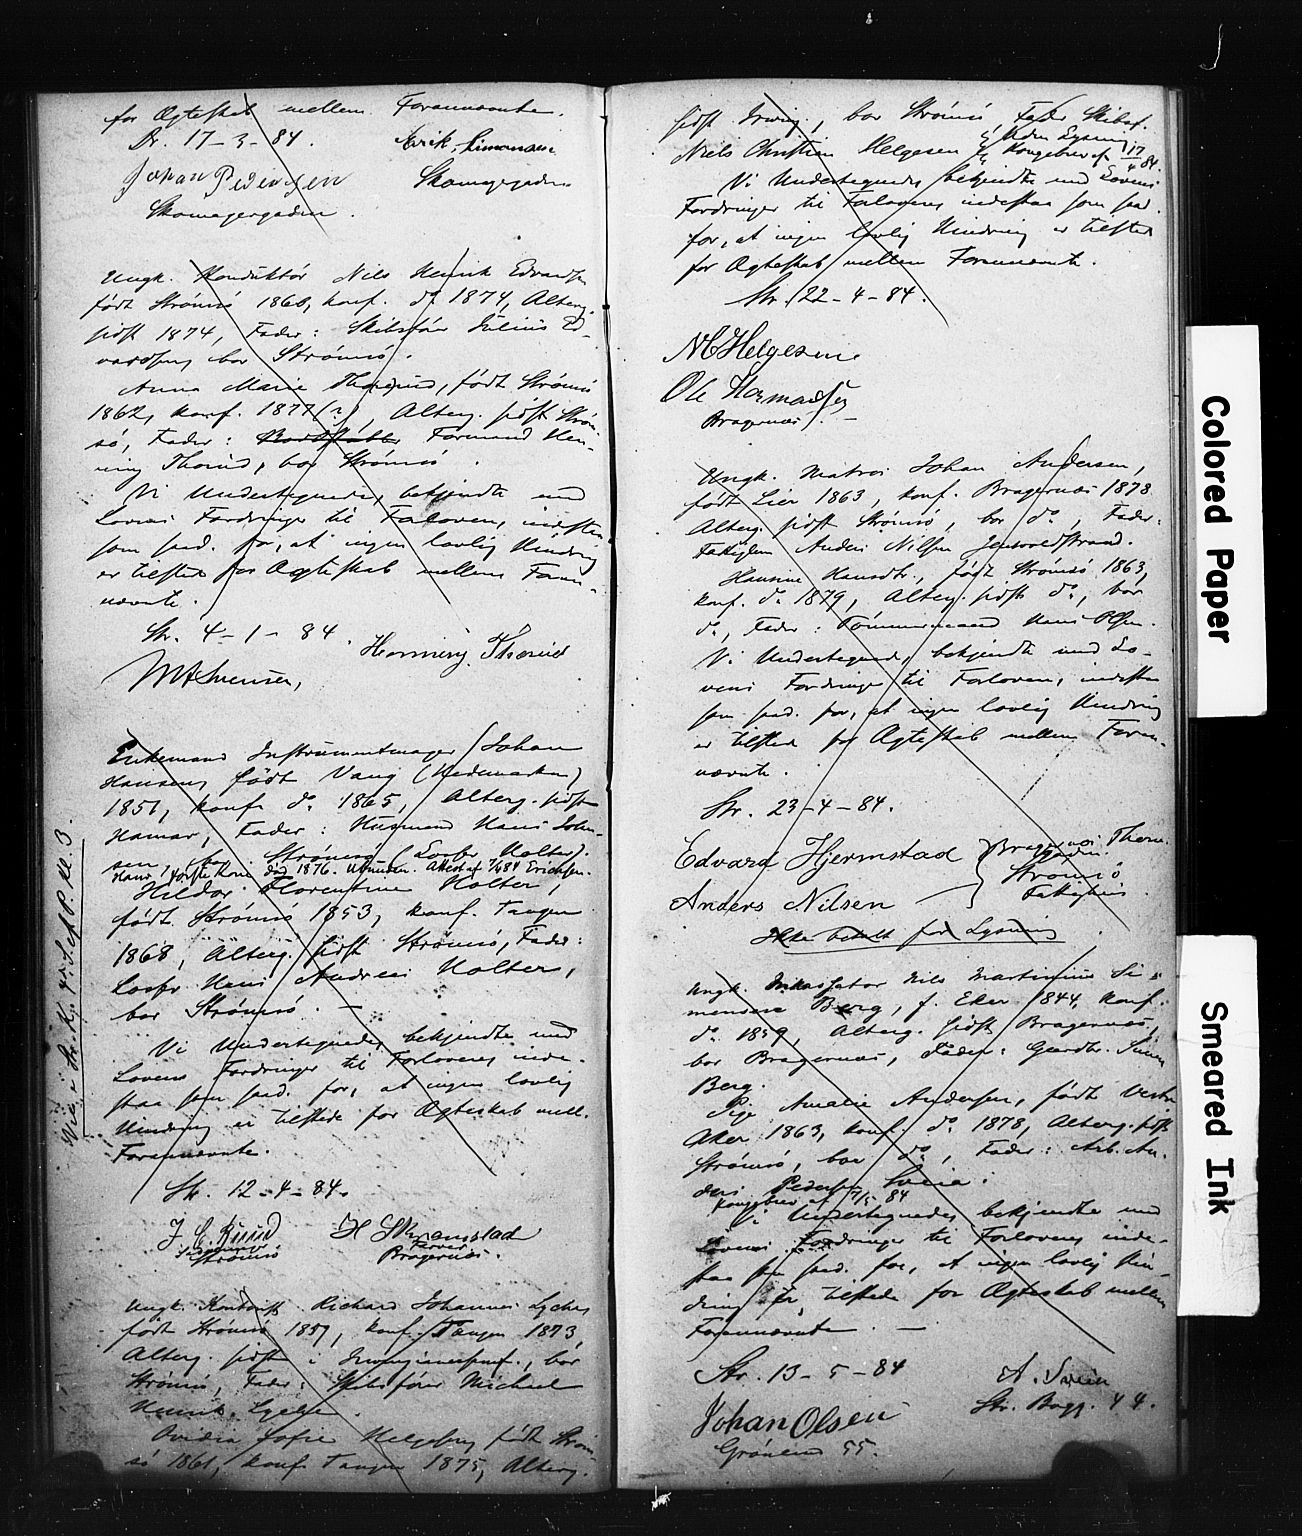 for Ægteskab mellem Forannævnte.
Dr. 17-3-84.
Johan Pedersen
Skomagergaden.
Skomagergaden
Ungk. Konduktör Nils Henrik Edvardsen
födt Strömsö 1860, konf. do 1874, Alterg.
sidst 1874, Fader: Skibsför Julius Ed-
vardsen, bor Strömsö.
Anna Marie Thorsrud, födt Strömsö
1862, konf. 1877(?), Alterg. sidst Ström-
sö, Fader: Formand Hen-
ning Thorud, bor Strömsö.
Vi Undertegnede, bekjendte med
Lovens Fordringer til Forlovere, indestaa
som saad. for, at ingen lovlig Hindring
er tilstede for Ægteskab mellem Foran-
nævnte.
Str. 4-1-84.
Henning Thorud
Enkemand Instrumentmager Johan
Hansen, födt Vang (Hedemarken)
1851, konf. do 1865, Alterg. sidst
Hamar, Fader: Husmand Hans John-
sen, bor Strömsö (Loser Holter).
Hans förste Kone död 1876. Attest af 7/4 84 Erichsen.
Hilda Florentine Holter,
födt Strömsö 1853, konf. Tangen
1868, Alterg. sidst Strömsö, Fader:
Hans Andreas Holter,
bor Strömsö. —
Vi Undertegnede, bekjendte med
Lovens Fordringer til Forlovere, inde-
staa som saad. for, at ingen lovlig
Hindring er tilstede for Ægteskab mell.
Forannævnte.
Str. 12-4-84.
J. C. Ruud
Strömsö
H Skramstad
Bragernæs.
Ungk. Kontorist Richard Johannes Lyche,
födt Strömsö 1857, konf. Tangen 1873,
Alterg. sidst i, bor
Strömsö, Fader: Skibsförer Michael
Henrik Lyche.
Ovidia Sofie Helgesen, födt Ström-
sö 1861, konf. Tangen 1875, Alterg.
sidst, bor Strömsö, Fader Skibsf.
Niels Christian Helgesen
Uden Lysning
Kongebrev af 17/4 84.
Vi Undertegnede, bekjendte med Lovens
Fordringer til Forlovere, indestaa som saad.
for, at ingen lovlig Hindring er tilstede
for Ægteskab mellem Forannævnte.
Str. 22-4-84.
NC Helgesen.
Ole Hermansen
Bragernæs. —
Ungk. Matros Johan Andersen,
födt Lier 1863, konf. Bragernæs 1878
Alterg. sidst Strömsö, bor do, Fader:
Fattiglem Anders Nilsen
Hansine Hansdtr., födt Strömsö 1863,
konf. do 1879, Alterg. sidst do, bor
do, Fader: Tömmermand Hans Olsen.
Vi Undertegnede, bekjendte med Lo-
vens Fordringer til Forlovere, indestaa
som saad. for, at ingen lovlig Hindring
er tilstede for Ægteskab mellem Foran-
nævnte.
Str. 23-4-84.
Edvard Hjermstad
Anders Nilsen
Bragernæs Thorn
Strömsö
Ikke betalt for Lysning
Ungk. Inkassator Nils Martinius Si-
monsen Berg, f. Eker 1844, konf.
do 1859, Alterg. sidst Bragernæs,
bor Bragernæs, Fader: Gaardbr. Simen
Berg.
Pige Amalie Andersen, födt Vestre
Aker 1863, konf. do 1878, Alterg. sidst
Strömsö, bor do, Fader: Arb. An-
ders Pedersen Sveia.
Kongebrev af 7/5 84
Vi Undertegnede, bekjendte med
Lovens Fordringer til Forlovere, inde-
staa som saad. for, at ingen lovlig Hin-
dring er tilstede for Ægteskab mellem
Forannævnte. —
Str. 13-5-84
Johan Olsen
Grönland 55.
Str. Bagg. 44.
Viet i Str. K. 7. Sept P. Kl. 3.
Colored Paper
Smeared Ink